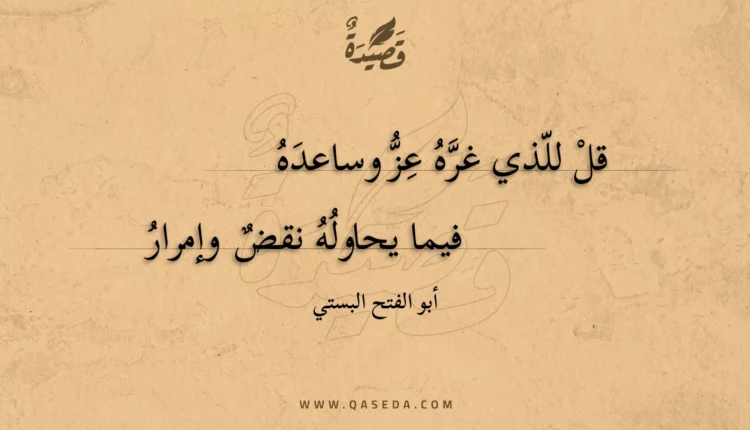 قَصِيدَةٌ
قلْ للّذي غرَّهُ عِزُّ وساعدَهُ
فيما يحاولُهُ نقضٌ وإمرارُ
أبو الفتح البستي
WWW.QASEDA.COM